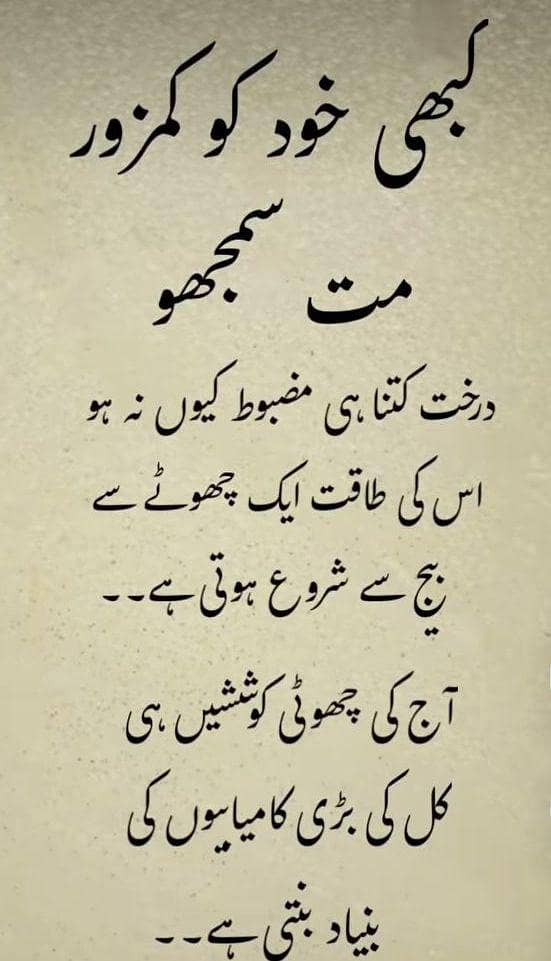 کبھی خود کو کمزور
مت سمجھو
درخت کتنا ہی مضبوط کیوں نہ ہو
اس کی طاقت ایک چھوٹے سے
بیج سے شروع ہوتی ہے۔۔
آج کی چھوٹی کوششیں ہی
کل کی بڑی کامیابیوں کی
بنیاد بنتی ہے۔۔